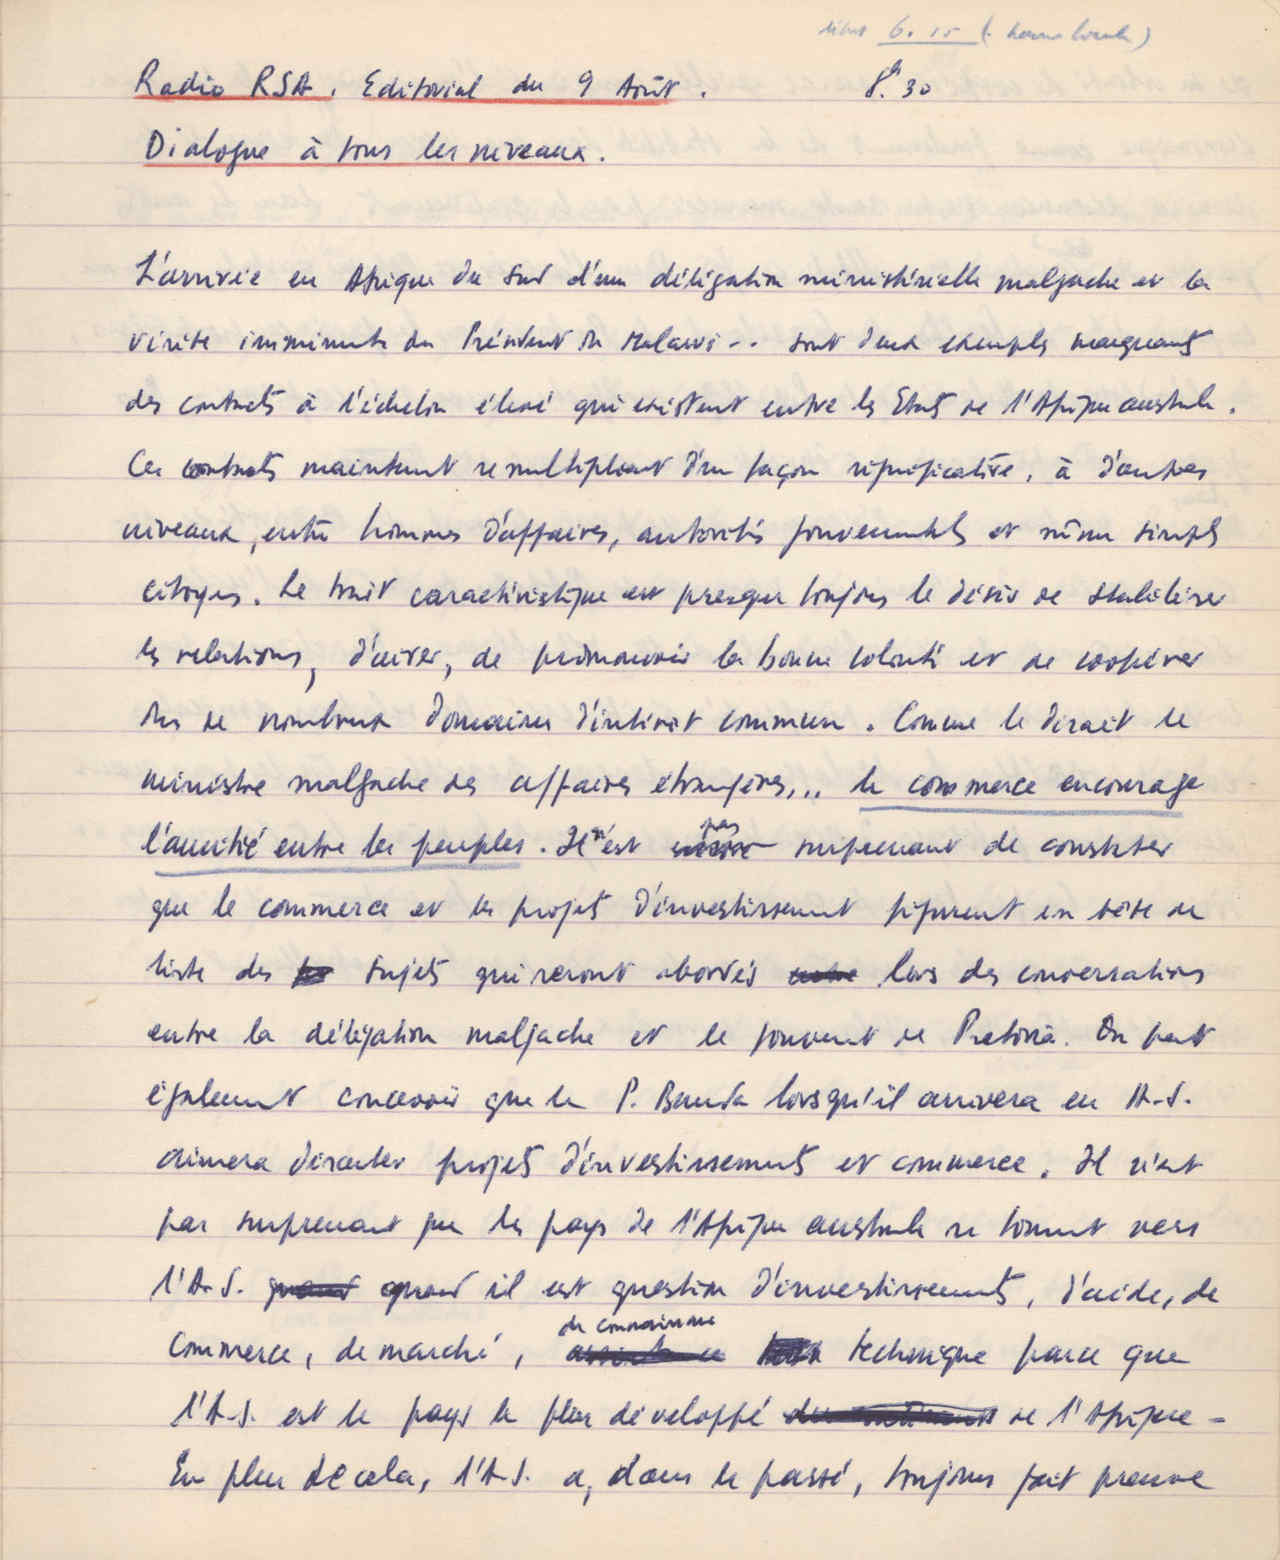 6.15 (
Radio RSA. Editorial du 9 Août. 8h.30
Dialogue à tous les niveaux.
L'arrivée en Afrique du Sud d'une délégation ministérielle malgache et la
visite imminente du Président du Malawi .. sont deux exemples marquants
des contacts à l'échelon élevé qui existent entre les Etats de l'Afrique australe.
Ces contacts maintenant se multiplient d'une façon significative, à d'autres
niveaux, entre hommes d'affaires, autorités gouvernementales et même simples
citoyens. Le trait caractéristique est presque toujours le désir de stabiliser
les relations, d'aider, de promouvoir la bonne volonté et de coopérer
dans de nombreux domaines d'intérêt commun. Comme le disait le
ministre malgache des affaires étrangères,.. le commerce encourage
l'amitié entre les peuples. Il n'est pas surprenant de constater
que le commerce et les projets d'investissement figurent en tête de
liste des sujets qui seront abordés lors des conversations
entre la délégation malgache et le gouvent de Pretoria. On peut
également concevoir que le P. Banda lorsqu'il arrivera en A.S.
aimera discuter projets d'investissements et commerce. Il n'est
pas surprenant que les pays de l'Afrique australe se tournent vers
l'A.S. quand il est question d'investissements, d'aide, de
commerce, de marché, de connaissance technique parce que
l'A.S. est le pays le plus développé de l'Afrique -
En plus de cela, l'A.S. a, dans le passé, toujours fait preuve